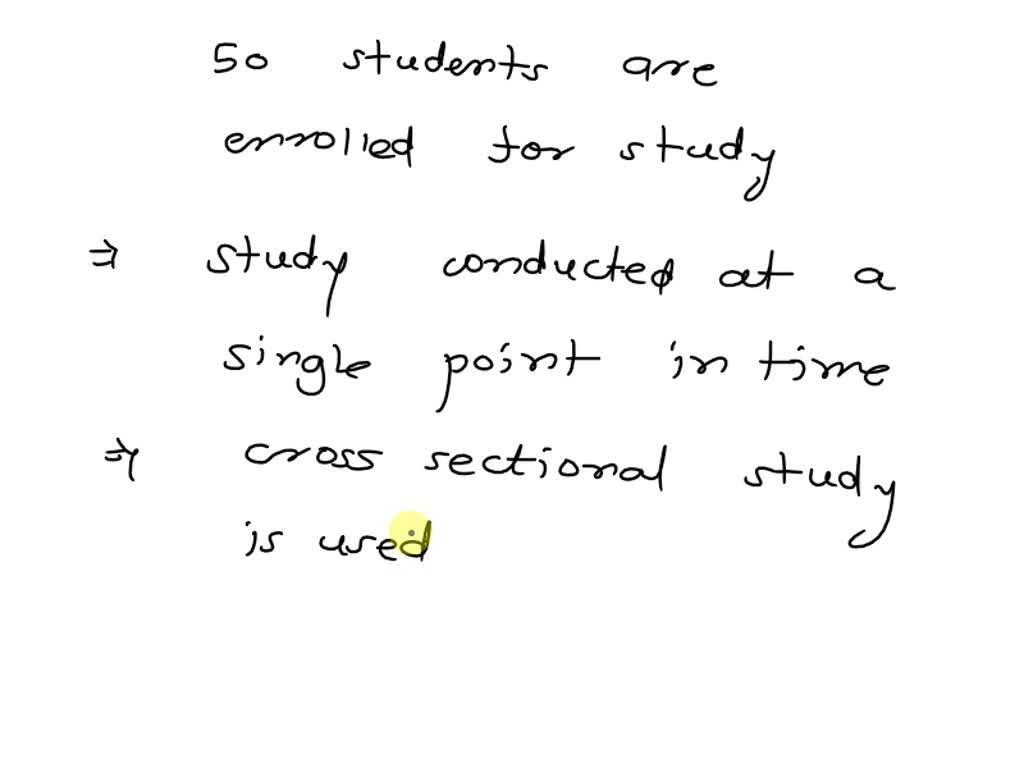 50 students are
enrolled for study
⇒ study conducted at a
single point in time
⇒ cross sectional study
is used